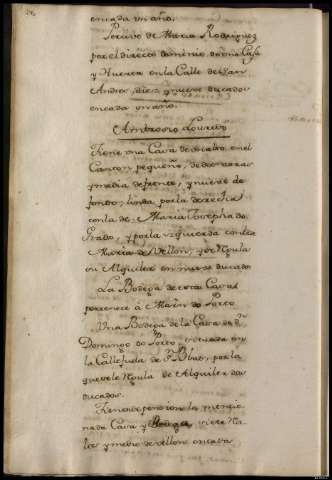 en cada un año.
Percivo de Maria Rodriguez
por el directo dominio de una Casa
y Huerta en la Calle de San
Andres, diez y nueve ducados
en cada un año.
Ambrosio Loureiro
Tiene una Casa de un alto en el
Canton pequeño, de dos varas
y media de frente, y nueve de
fondo; linda por la derecha
con la de Maria Josepha do
Prado, y por la izquierda con la
Maria de Vellon, y se regula
su Alquiler en nueve ducados
La Bodega de esta Casa
pertenece à Maria do Porto
Una Bodega de la Casa de Dn
Domingo do Porto, situada en
la Callejuela de Sn Blas, por la
que se le regula de Alquiler dos
ducados.
Tiene de pension la mencio
nada Casa y Bodega siete Rea
les y medio de vellon en cada